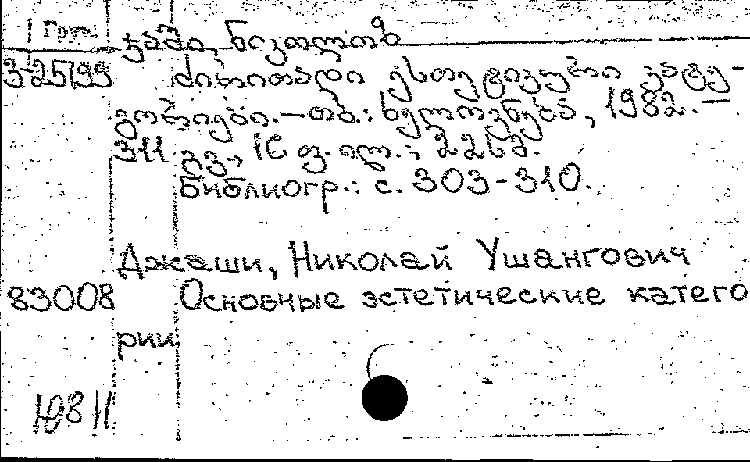 Груз.
ჯაში, ნიკოლოზ
325199 ძირითადი ესთეტიკური კატე-
გორიები.—თბ.: ხელოვნება, 1982.—
311 გვ., 16 ფ. ილ.; 22სმ.
Библиогр.: с. 303-310.
Джаши, Николай Ушангович
83008 Основные эстетические катего
рии
Ю8 11